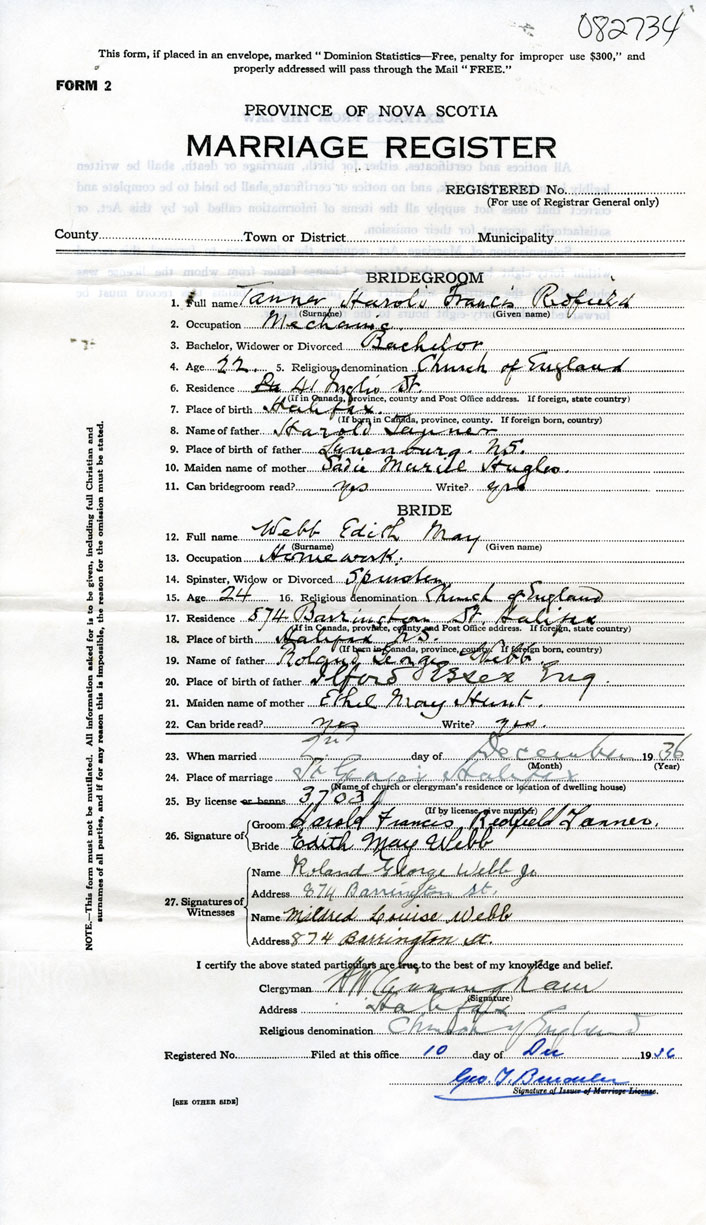 082734
This form, if placed in an envelope, marked "Dominion Statistics—Free, penalty for improper use $300," and
properly addressed will pass through the Mail "FREE."
FORM 2
PROVINCE OF NOVA SCOTIA
MARRIAGE REGISTER
REGISTERED No.
(For use of Registrar General only)
County Town or District Municipality
BRIDEGROOM
1. Full name Tanner Harold Francis Redfield
(Surname) (Given name)
2. Occupation Mechanic
3. Bachelor, Widower or Divorced Bachelor
4. Age 22 5. Religious denomination Church of England
6. Residence 41 Inglis St.
(If in Canada, province, county and Post Office address. If foreign, state country)
7. Place of birth Halifax.
(If born in Canada, province, county. If foreign born, country)
8. Name of father Harold Tanner
9. Place of birth of father Lunenburg. N.S.
10. Maiden name of mother Sadie Hughes.
11. Can bridegroom read? yes Write? yes
BRIDE
12. Full name Webb Edith May
(Surname) (Given name)
13. Occupation Homework.
14. Spinster, Widow or Divorced Spinster
15. Age 24 16. Religious denomination Church of England
17. Residence 874 Barrington St. Halifax
(If in Canada, province, county and Post Office address. If foreign, state country)
18. Place of birth Halifax N.S.
(If born in Canada, province, county. If foreign born, country)
19. Name of father Roland George Webb
20. Place of birth of father Ilford Essex Eng.
21. Maiden name of mother Ethel May Hunt.
22. Can bride read? yes Write? yes.
23. When married day of December 1936
(Month) (Year)
24. Place of marriage Halifax
(Name of church or clergyman's residence or location of dwelling house)
25. By license or banns 37039
(If by license, give number)
26. Signature of Groom Harold Francis Redfield Tanner.
Bride Edith May Webb
27. Signatures of Witnesses Name Roland George Webb Jr
Address 874 Barrington St.
Name Mildred Louise Webb
Address 874 Barrington St.
I certify the above stated particulars are true, to the best of my knowledge and belief.
Clergyman Cunningham
(Signature)
Address Halifax
Religious denomination Church of England
Registered No. Filed at this office 10 day of Dec 1936
Geo. T.
Signature of Issuer of Marriage License.
[SEE OTHER SIDE]
NOTE.—This form must not be mutilated. All information asked for is to be given, including full Christian and
surnames of all parties, and if for any reason this is impossible, the reason for the omission must be stated.